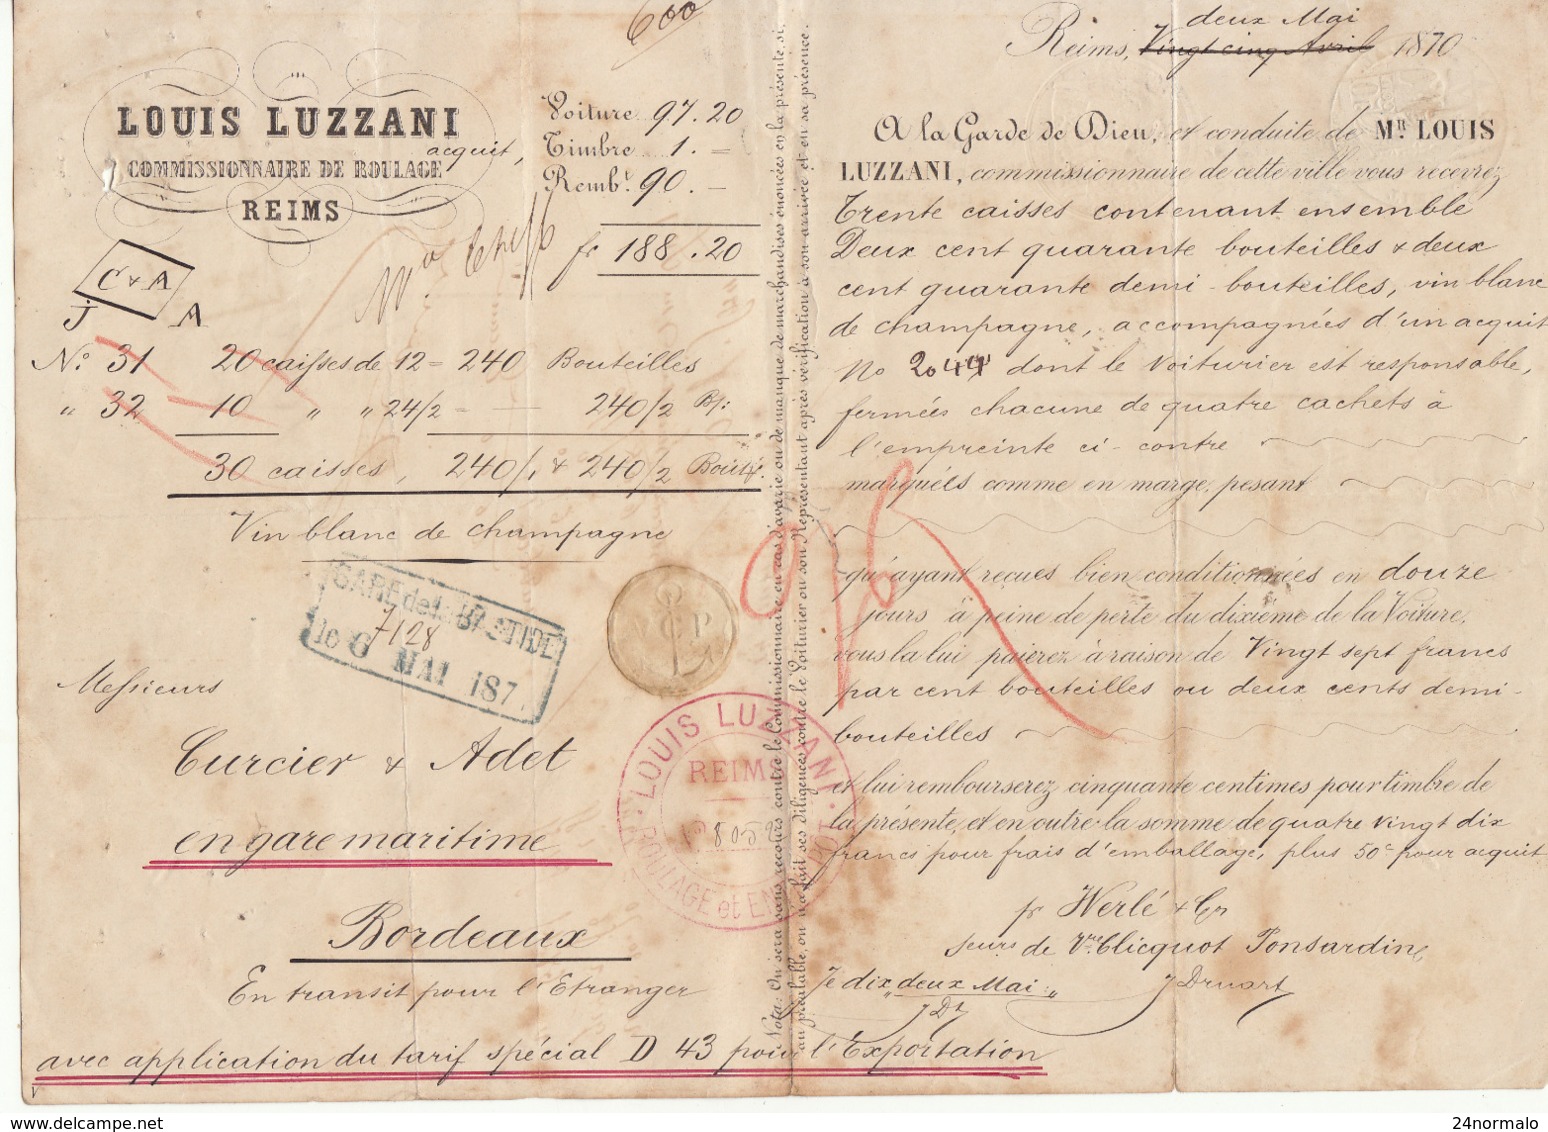 600
LOUIS LUZZANI
COMMISSIONNAIRE DE ROULAGE
REIMS
acquit,
Voiture 97.20
Timbre 1.=
Remb.t 90.-
fr 188.20
C & A
J A
No. 31 20 caisses de 12 = 240 Bouteilles
" 32 10 " " 24/2 = 240/2 Bs:
30 caisses, 240/1 & 240/2 Bouteilles
Vin blanc de champagne
GARE de LA BASTIDE
7128
le 6 MAI 187
Messieurs
Curcier & Adet
en gare maritime
Bordeaux
En transit pour l'Etranger
avec application du tarif spécial D 43 pour l'Exportation
LOUIS LUZZANI
REIMS
8052
ROULAGE et ENTREPOT
Nota: On sera sans recours contre le Commissionnaire en cas d'avarie ou de manque de marchandises énoncées en la présente, si,
au préalable, on n'a fait ses diligences contre le Voiturier ou son Représentant après vérification à son arrivée et en sa présence.
deux Mai
Reims, Vingt cinq Avril 1870
A la Garde de Dieu, et conduite de Mr. LOUIS
LUZZANI, commissionnaire de cette ville vous recevrez
Trente caisses contenant ensemble
Deux cent quarante bouteilles & deux
cent quarante demi-bouteilles, vin blanc
de champagne, accompagnées d'un acquit
No 2044 dont le voiturier est responsable,
fermées chacune de quatre cachets à
l'empreinte ci-contre
marquées comme en marge, pesant
qu'ayant reçues bien conditionnées en douze
jours à peine de perte du dixième de la Voiture,
vous la lui paierez à raison de Vingt sept francs
par cent bouteilles ou deux cents demi-
bouteilles
et lui rembourserez cinquante centimes pour timbre de
la présente, et en outre la somme de quatre vingt dix
francs pour frais d'emballage, plus 50c pour acquit
pr Werlé & Cie
seurs de Vve Clicquot Ponsardin,
Je dix „deux Mai„ J Druart
J Dt
24normalo